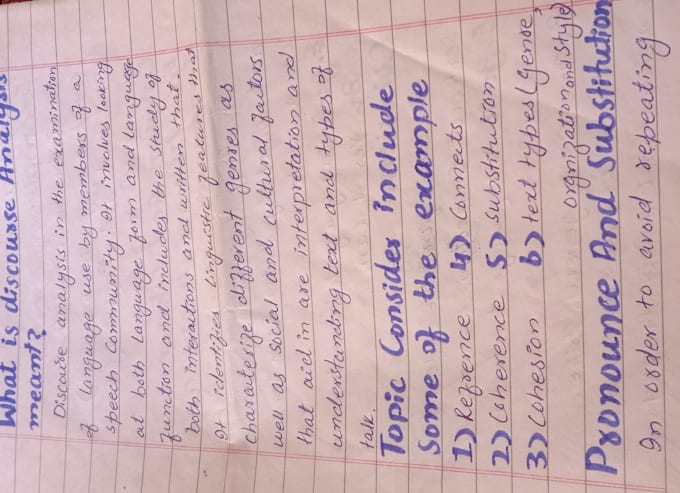 What is discourse Analysis
meant?
Discouse analysis in the examination
of language use by members of a
speech Community. It involves looking
at both Language form and language
function and includes the study of
both interactions and written that.
It identifies linguistic features that
characterize different genres as
well as social and cultural factors
that aid in are interpretation and
understanding text and types of
talk.
Topic Consider include
Some of the example
1) Refrence 4) Connets
2) Coherence 5) Substitution
3) Cohesion 6) text types (Genre,
orgnization and style)
Pronounce And Substitution
In order to avoid repeating